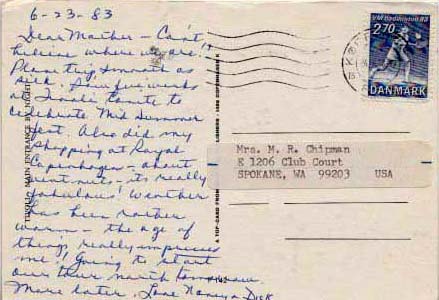 6-23-83
Dear Mother - Can't
believe where we are.
Plane trip, smooth as
silk. Saw fireworks
at Tivoli Came to
celebrate Mid Summer
fest. Also did my
shopping at Royal
Copenhagen - about
went nuts! it's really
fabulous! Weather
has been rather
warm - the age of
things really impresses
me! Going to start
our tour north tomorrow.
More later, Love Nancy & Dick
TIVOLI: MAIN ENTRANCE BY NIGHT
A TOP-CARD FROM
VM badminton 83
2.70
DANMARK
Mrs. M. R. Chipman
E 1206 Club Court
SPOKANE, WA 99203 USA